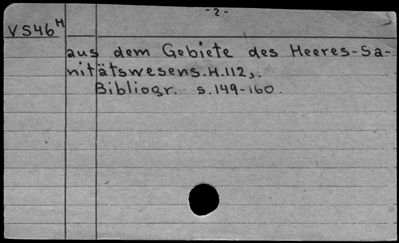 -2-
VS46M
aus dem Gebiete des Heeres-Sa-
nitätswesens.H.112,.
Bibliogr. s.149-160.